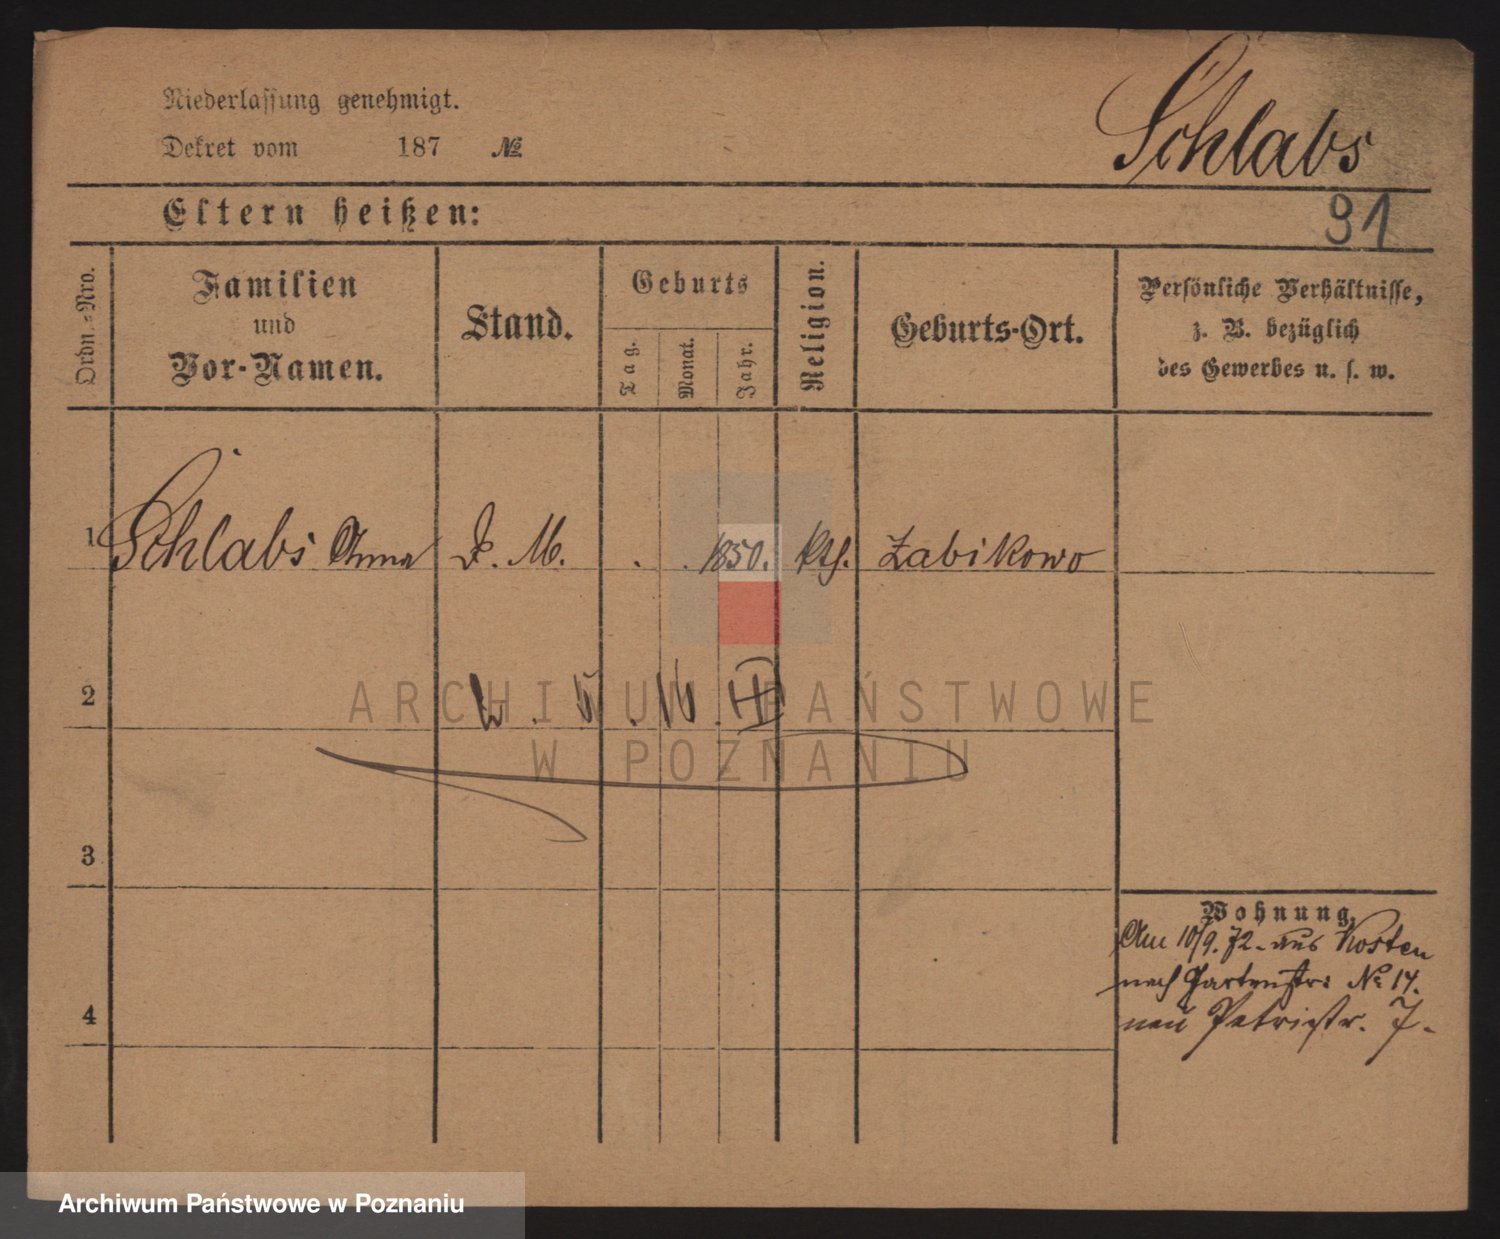 Schlabs
Niederlassung genehmigt.
Dekret vom 187 №
Eltern heißen:
91
Ordn.-Nro.
Familien
und
Vor-Namen.
Stand.
Geburts
Tag.
Monat.
Jahr.
Religion.
Geburts-Ort.
Persönliche Verhältnisse,
z. B. bezüglich
des Gewerbes u. s. w.
1 Schlabs Anna D. M. . . 1850. kth. Zabikowo
2
ARCHIWUM PAŃSTWOWE
W POZNANIU
3
Wohnung.
Am 10/9. 72 - aus Kosten
nach Gartenstr: № 14.
4
neu Petristr. 7 -
Archiwum Państwowe w Poznaniu